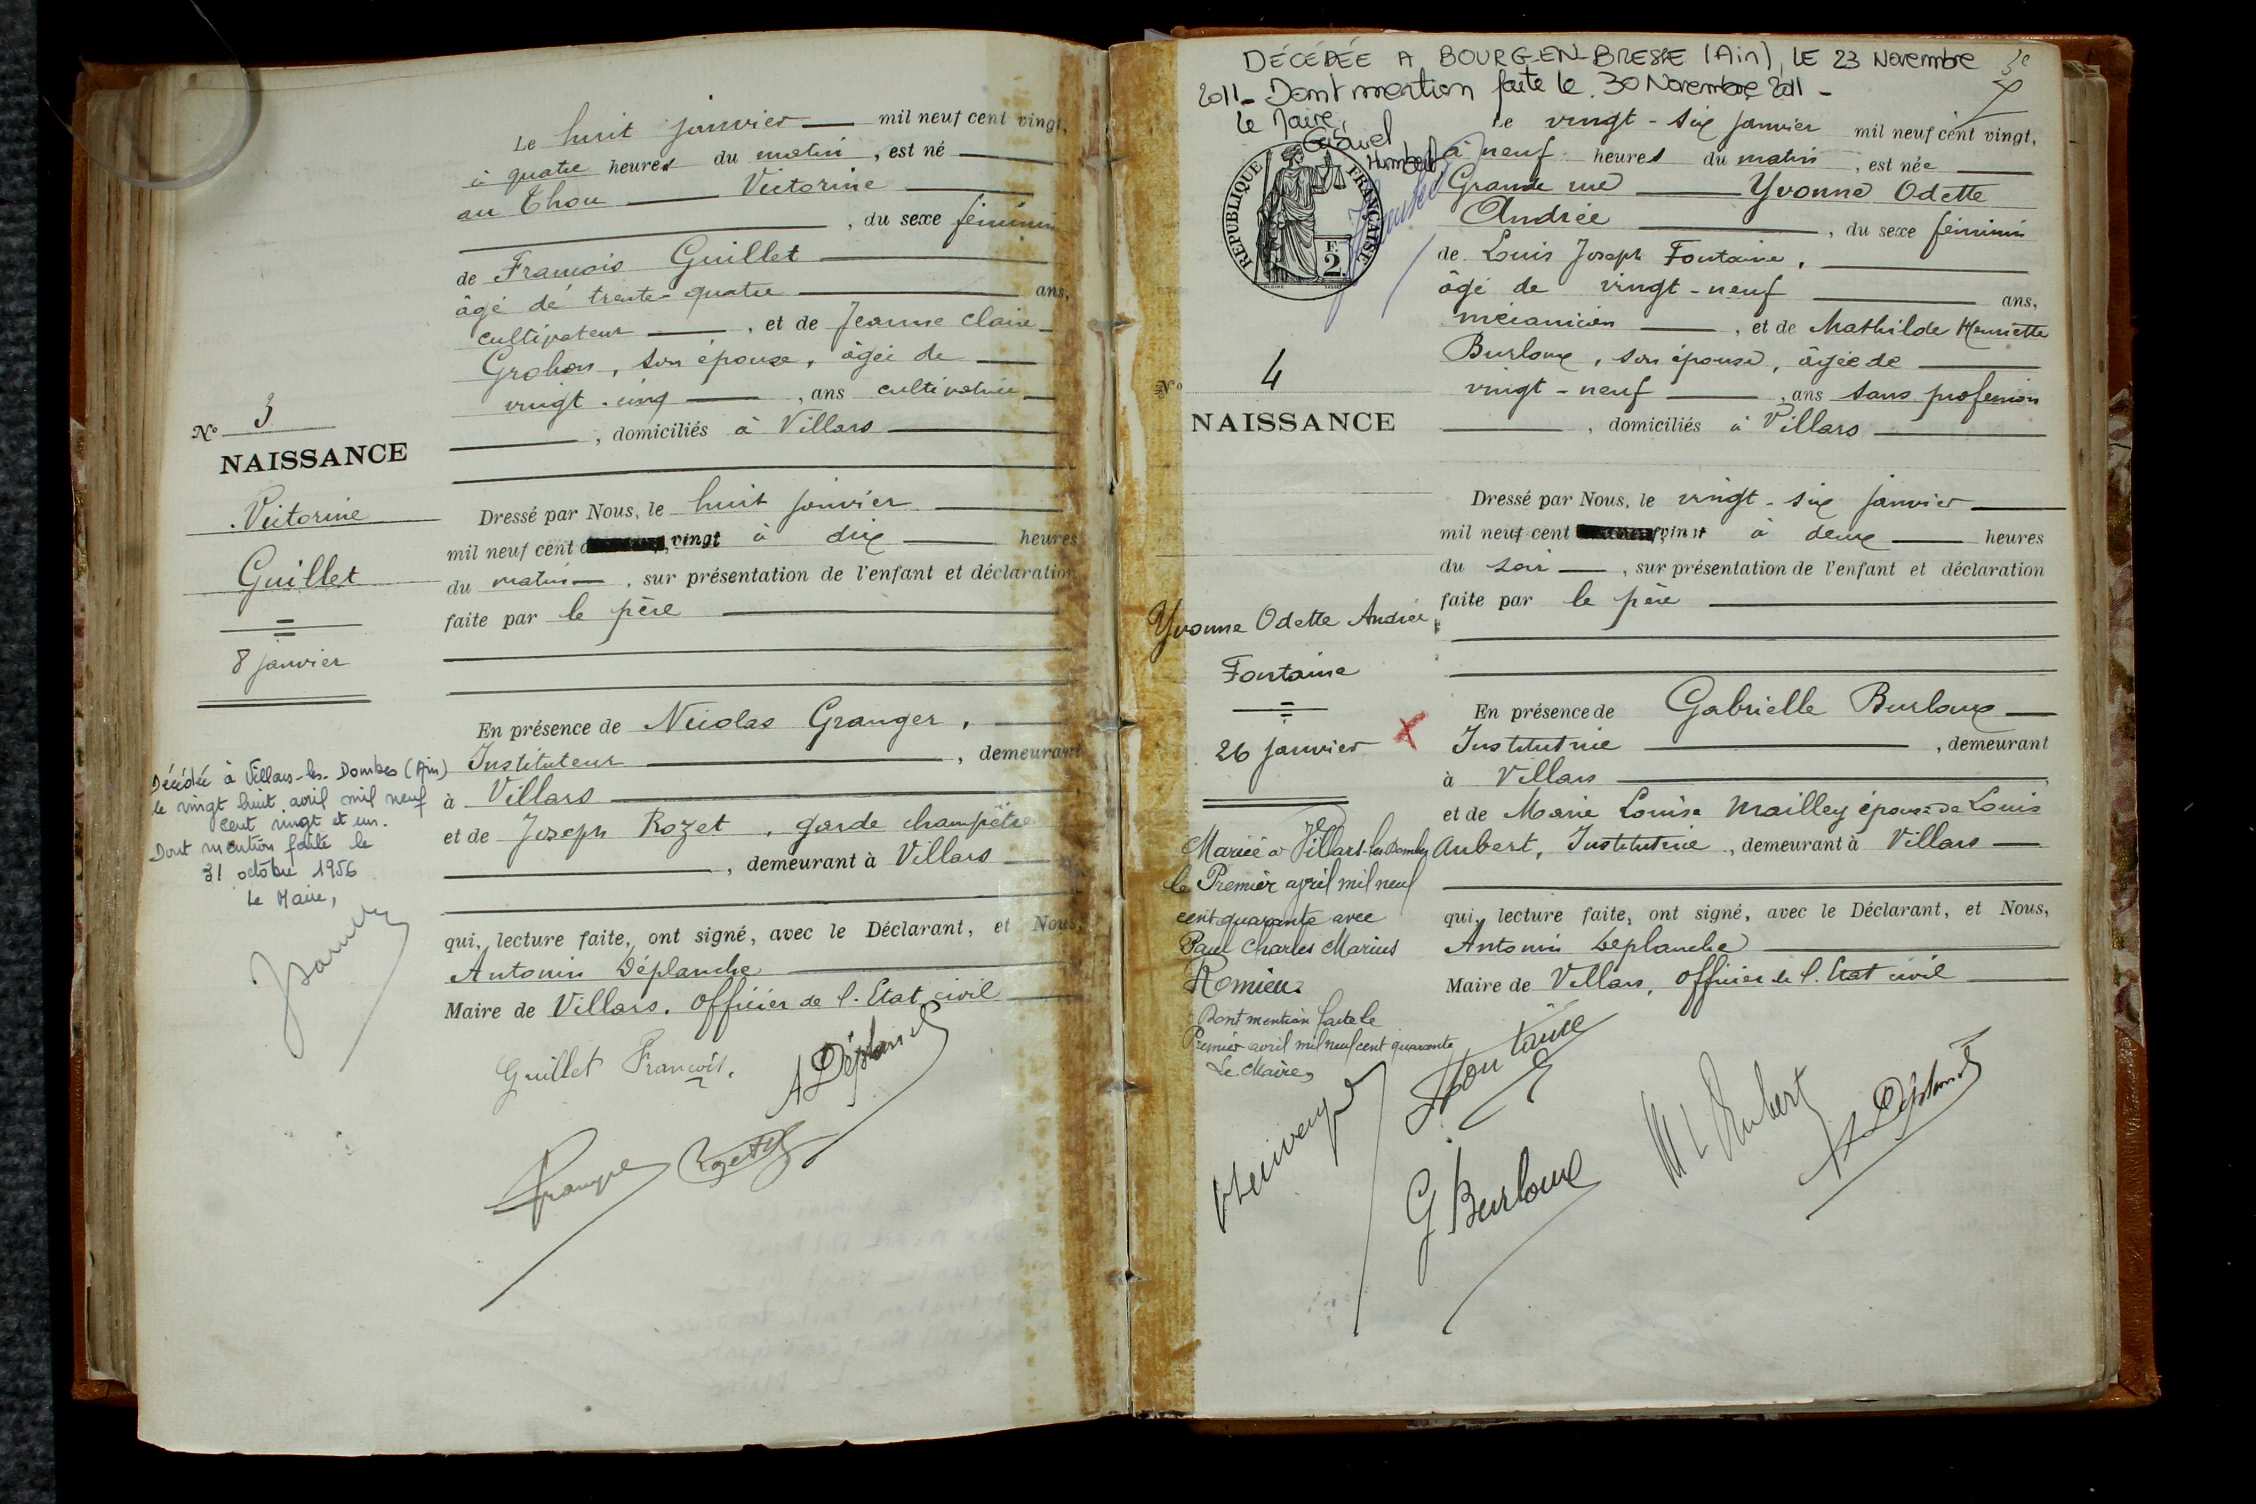 Le huit janvier mil neuf cent vingt,
à quatre heures du matin, est né
au Thou Victorine
, du sexe féminin
de François Guillet
âgé de trente-quatre ans,
cultivateur, et de Jeanne Claire
Grobon, son épouse, âgée de
vingt-cinq, ans cultivatrice
, domiciliés à Villars
No 3
NAISSANCE
Victorine
Guillet
8 janvier
Dressé par Nous, le huit janvier
mil neuf cent vingt à dix heures
du matin, sur présentation de l'enfant et déclaration
faite par le père
En présence de Nicolas Granger,
Instituteur, demeurant
à Villars
et de Joseph Rozet, garde champêtre
, demeurant à Villars
Décédée à Villars-les-Dombes (Ain)
le vingt huit avril mil neuf
cent vingt et un.
Dont mention faite le
31 octobre 1956
Le Maire,
qui, lecture faite, ont signé, avec le Déclarant, et Nous,
Antonin Déplanche
Maire de Villars, officier de l'Etat civil
Guillet François.
A Déplanche
Granger Rozet
DÉCÉDÉE A BOURG-EN-BRESSE (Ain), LE 23 Novembre
2011 - Dont mention faite le 30 Novembre 2011 -
Le Maire,
Humbert
RÉPUBLIQUE FRANÇAISE
F.
2
Le vingt-six janvier mil neuf cent vingt,
à neuf heures du matin, est née
Grande rue Yvonne Odette
Andrée, du sexe féminin
de Louis Joseph Fontaine,
âgé de vingt-neuf ans,
mécanicien, et de Mathilde Henriette
Burloux, son épouse, âgée de
vingt-neuf, ans sans profession
, domiciliés à Villars
No 4
NAISSANCE
Yvonne Odette Andrée
Fontaine
26 janvier
Dressé par Nous, le vingt-six janvier
mil neuf cent vingt à deux heures
du soir, sur présentation de l'enfant et déclaration
faite par le père
En présence de Gabrielle Burloux
Institutrice, demeurant
à Villars
et de Marie Louise Mailley épouse de Louis
Aubert, Institutrice, demeurant à Villars
Mariée à Villars-les-Dombes
le Premier avril mil neuf
cent quarante avec
Paul Charles Marius
Romieu.
Dont mention faite le
Premier avril mil neuf cent quarante
Le Maire,
qui, lecture faite, ont signé, avec le Déclarant, et Nous,
Antonin Déplanche
Maire de Villars, officier de l'Etat civil
Fontaine
G Burloux
M L Aubert
A Déplanche